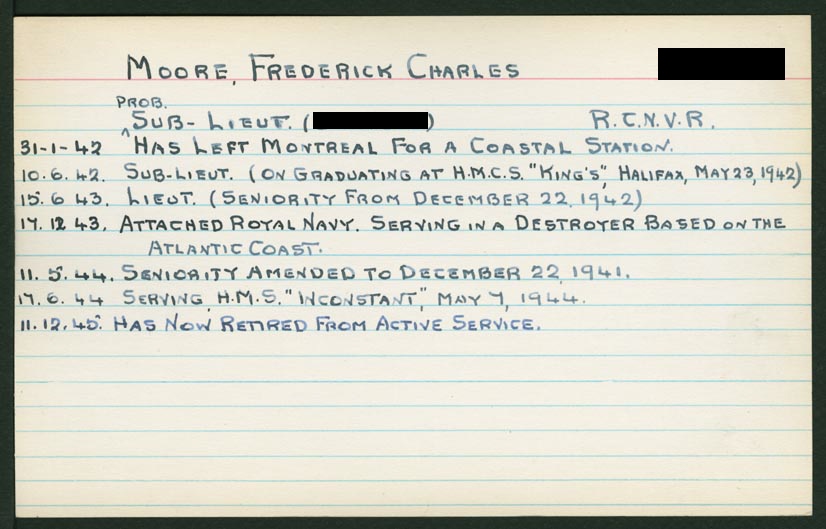 MOORE, FREDERICK CHARLES
PROB.
SUB-LIEUT. ( ) R.C.N.V.R.
31-1-42 HAS LEFT MONTREAL FOR A COASTAL STATION.
10.6.42. SUB-LIEUT. (ON GRADUATING AT H.M.C.S. "KING'S", HALIFAX, MAY 23, 1942)
15.6 43. LIEUT. (SENIORITY FROM DECEMBER 22, 1942)
17.12 43. ATTACHED ROYAL NAVY. SERVING IN A DESTROYER BASED ON THE
ATLANTIC COAST.
11.5.44. SENIORITY AMENDED TO DECEMBER 22, 1941.
17.6.44 SERVING, H.M.S. "INCONSTANT", MAY 7, 1944.
11.12.45. HAS NOW RETIRED FROM ACTIVE SERVICE.